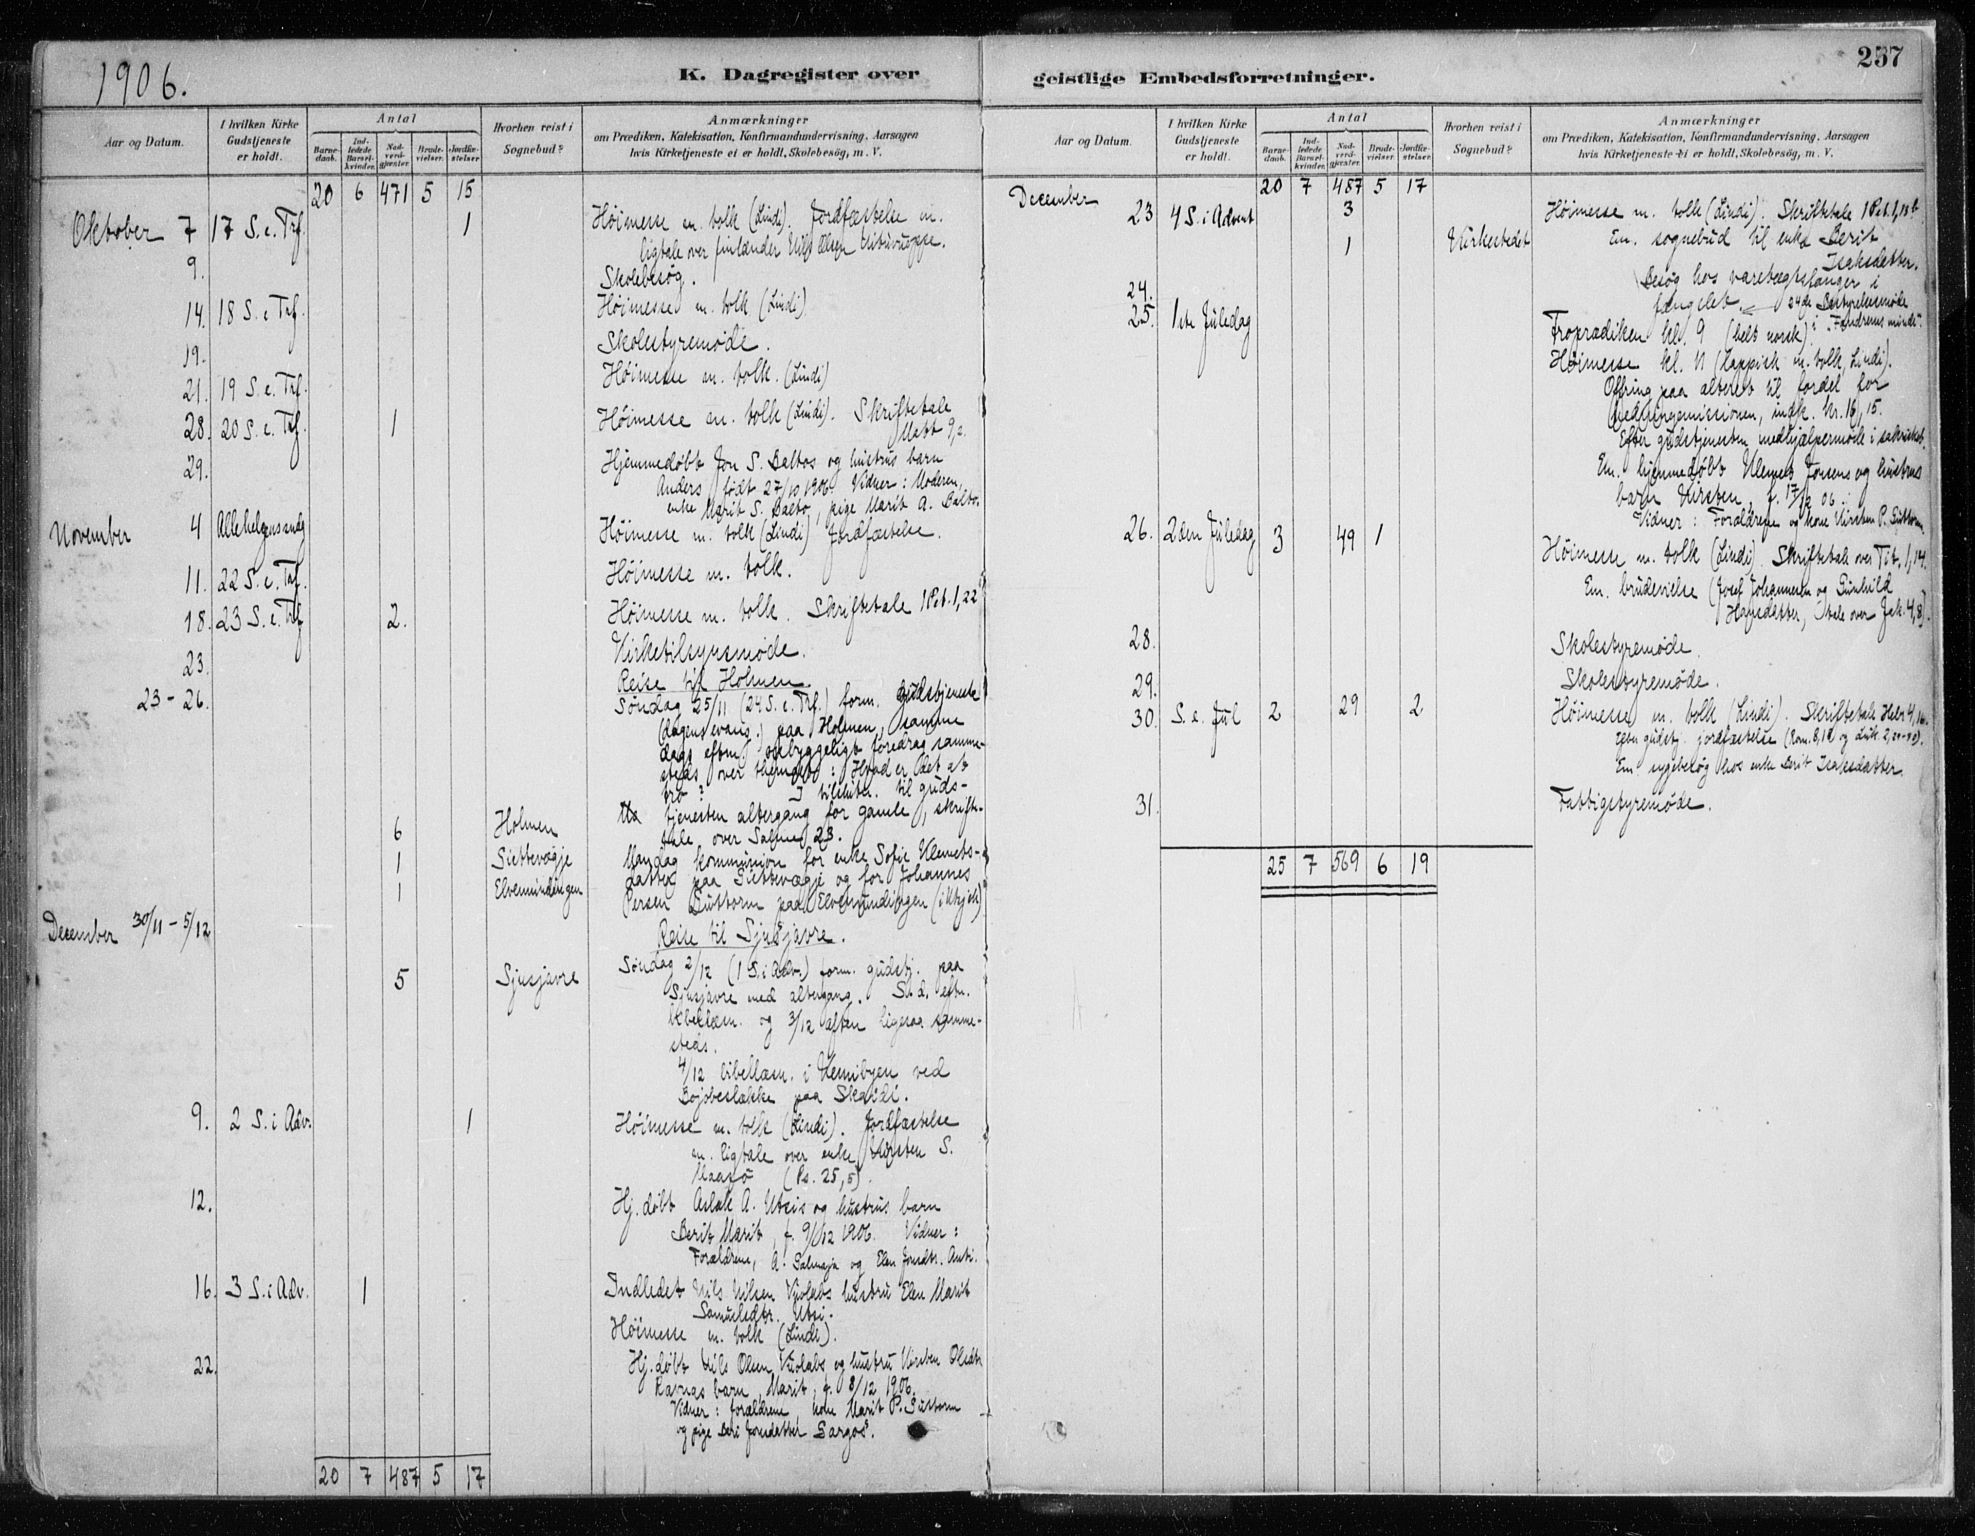 1906.
K. Dagregister over
Aar og Datum.
I hvilken Kirke Gudstjeneste er holdt.
Antal
Barnedaab.
Indledede Barselkvinder.
Nadverdgjæster.
Brudevielser.
Jordfæstelser
Hvorhen reist i Sognebud?
Anmærkninger
om Prædiken, Katekisation, Konfirmandundervisning, Aarsagen
hvis Kirketjeneste ei er holdt, Skolebesøg, m. V.
20 6 471 5 15
Oktober 7 17 S. e. Trf. 1 Høimesse m. tolk (Lindi). Jordfæstelse m.
ligtale over finlænder Olsen
9. Skolebesøg.
14. 18 S. e. Trf. Høimesse m. tolk (Lindi)
19. Skolestyremøde.
21. 19 S. e. Trf. Høimesse m. tolk. (Lindi)
28. 20 S. e. Trf. 1 Høimesse m. tolk (Lindi). Skriftetale
Matt 9,2.
29. Hjemmedøbt Jon S. Baltos og hustrus barn
Anders født 27/10 1906. Vidner: Moderen,
enke Marit S. Balto, pige Marit A. Balto.
November 4 Allehelgensandg Høimesse m. tolk (Lindi) Jordfæstelse.
11. 22 S. e. Trf. Høimesse m. tolk.
18. 23 S. e. Trf 2. Høimesse m. tolk. Skriftetale 1 Pet. 1, 22
23. Kirketilsynsmøde.
23 - 26. Reise til Holmen.
Søndag 25/11 (24 S. e. Trf.) form. gudstjeneste
(dagens evang.) paa Holmen, samme
dags efterm. opbyggeligt foredrag samme-
steds over themaet: Hvad er det at
tro? I tilslutn. til guds-
tjenesten altergang for gamle, skrifte-
6 Holmen tale over Salme 23.
1 Siettevægje Mandag kommunion for enke Sofie Klemets-
datter paa Siettevægje og for Johannes
1 Elvemundingen Persen Guttorm paa Elvemundingen (iktsjok)
December 30/11 - 5/12 Reise til Sjusjavre.
Søndag 2/12 (1 S. i Adv.) form. gudstj. paa
5 Sjusjavre Sjusjavre med altergang. S. d. eftm.
bibellæsn. og 3/12 aften ligesaa samme-
steds.
4/12 bibellæsn. i Nemibyen ved
Bojobeslække paa Skaidi.
9. 2 S. i Adv. 1 Høimesse m. tolk (Lindi). Jordfæstelse
m. ligtale over enke Kirsten S.
Maasø (Ps. 25, 5).
12. Hj. døbt Aslak A. Utsis og hustrus barn
Berit Marit, f. 9/12 1906. Vidner:
Forældrene, A. Salmaja og Elen Jonsdtr. Anti.
16. 3 S. i Adv. 1 Indledet Nils Nilsen Kvolabs hustru Elen Marit
Samuelsdtr. Utsi.
Høimesse m. tolk (Lindi).
22. Hj. døbt Nils Olsen Kuolabs og hustru Kirsten Olsdtr
Ravnas barn, Marit, f. 8/12 1906.
Vidner: forældrene kone Marit P. Guttorm
og pige Beri Jonsdatter Gargos.
20 7 487 5 17
geistlige Embedsforretninger.
257
Aar og Datum.
I hvilken Kirke Gudstjeneste er holdt.
Antal
Barnedaab.
Indledede Barselkvinder.
Nadverdgjæster
Brudevielser
Jordfæstelser.
Hvorhen reist i Sognebud?
Anmærkninger
om Prædiken, Katekisation, Konfirmandundervisning, Aarsagen
hvis Kirketjeneste ei er holdt, Skolebesøg, m. V.
20 7 487 5 17
December 23 4 S. i Advent 3 Høimesse m. tolk (Lindi). Skriftetale 1 Pet. 1, 18 b
1 Kirkestedet Em. sognebud til enke Berit
Isaksdatter.
24. Besøg hos varetægtsfanger i
fængslet. 24de Bestyrelsesmøde
i "Fændrens minde".
25. 1ste Juledag Froprædiken kl. 9 (helt norsk)
Høimesse kl. 11 (Lappisk m. tolk, Lindi).
Offring paa alteret til fordel for
hedningemissionen, indk. kr. 16,15.
Efter gudstjenesten medhjælpermøde i sakristiet.
Em. hjemmedøbt Klemet Jonsens og hustrus
barn Kirsten, f. 17/12 06.
Vidner: Forældrene og kone Kirsten P. Guttorm
26. 2den Juledag 3 49 1 Høimesse m. tolk (Lindi). Skriftetale over Tit. 1, 14.
Em. brudevielse (Josef Johannesen og Gunhild
Hansdatter, tale over Jak. 4, 8).
28. Skolestyremøde.
29. Skolestyremøde.
30. S. e. Jul 2 29 2 Høimesse m. tolk (Lindi). Skriftetale Hebr 4, 16.
efter gudstj. jordfæstelse (Rom. 8, 18 og Luk. 2, 29-32).
Em. sygebesøg hos enke Berit Isaksdatter.
31. Fattigstyremøde.
25 7 569 6 19